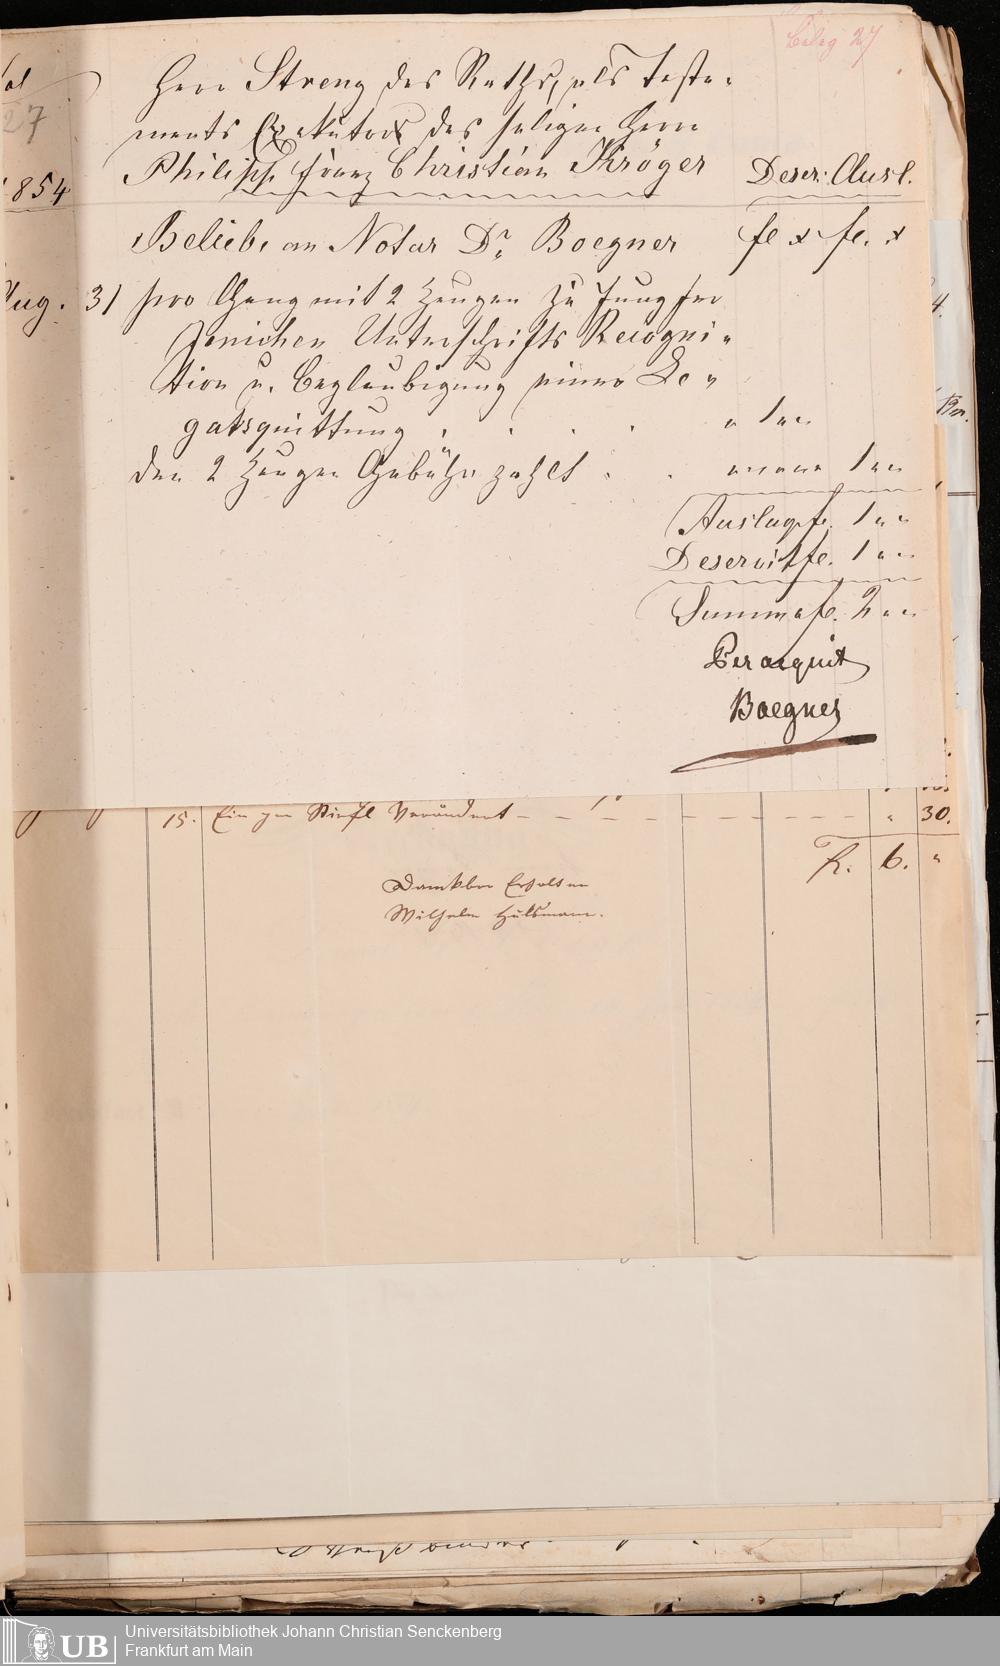 Beleg 27
27
Herr Streng des Raths, als Testa-
ments Exekutor des seligen Herrn
Philipp Franz Christian Kröger
Deser: Ausl.
1854
Beliebe an Notar Dr. Boegner
fl x fl. x
Aug. 31 pro Gang mit 2 Zeugen zu Jungfer
Jenichen Unterschrifts Recogni-
tion u. Beglaubigung einer Le-
gatsquittung . . . . " 1 " "
den 2 Zeugen Gebühr zahlt . . " " " " 1 " "
Auslag fl. 1 " "
Deservit fl. 1 " "
Summa fl. 2 " "
Per acquit
Boegner
15. Ein par Stiefl Verändert - - - - - - - - " 30.
fl. 6. "
Dankbar Erhalten
Wilhelm Hülsmann.
UB Universitätsbibliothek Johann Christian Senckenberg
Frankfurt am Main